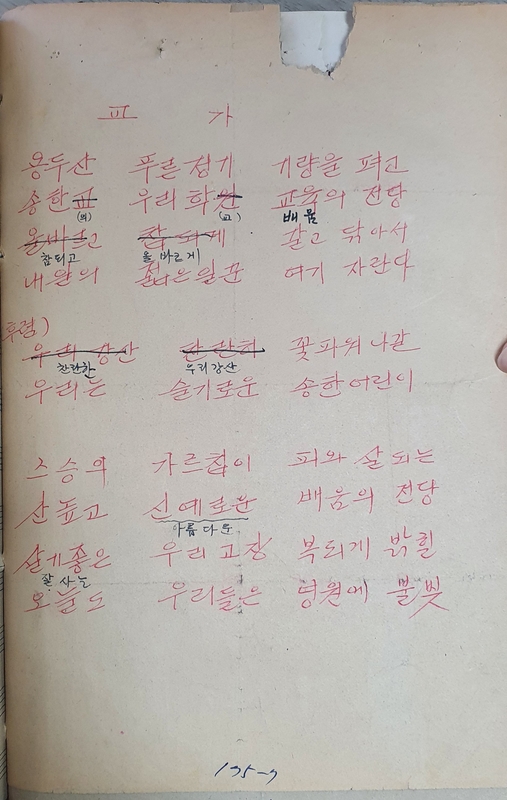 교 가
용두산 푸른 정기 기량을 펴고
송한교 우리 학원 교육의 전당
(의) (교) 배움
올바르고 참되게 갈고 닦아서
참되고 올바르게
내일의 젊은 일꾼 여기 자란다
후렴)
우리 강산 찬란히 꽃피워 나갈
찬란한 우리강산
우리는 슬기로운 송한어린이
스승의 가르침이 피와 살되는
산높고 신예로운 배움의 전당
아름다운
살기좋은 우리고장 복되게 밝힐
잘 사는
오늘도 우리들은 영원에 불빛